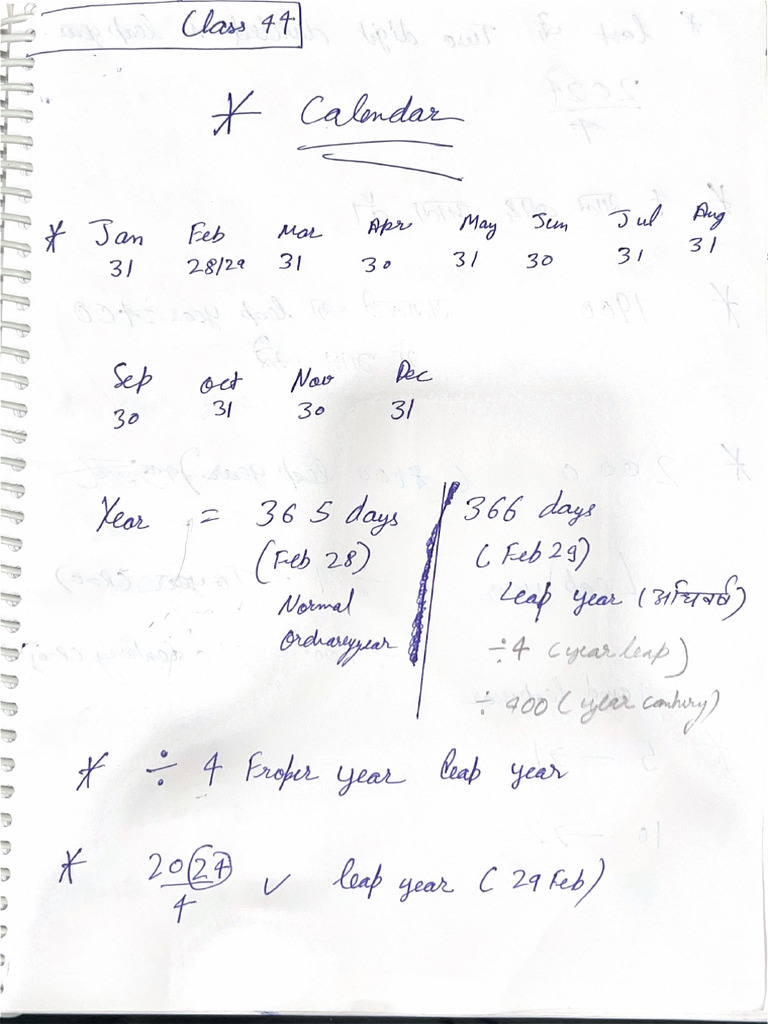 Class 44
* Calendar
* Jan Feb Mar Apr May Jun Jul Aug
31 28/29 31 30 31 30 31 31
Sep Oct Nov Dec
30 31 30 31
Year = 365 days 366 days
(Feb 28) (Feb 29)
Normal Leap year (अधिवर्ष)
year ÷4 (year leap)
÷ 400 (year
* ÷ 4 Proper year leap year
* 2024/4 ✓ leap year (29 Feb)